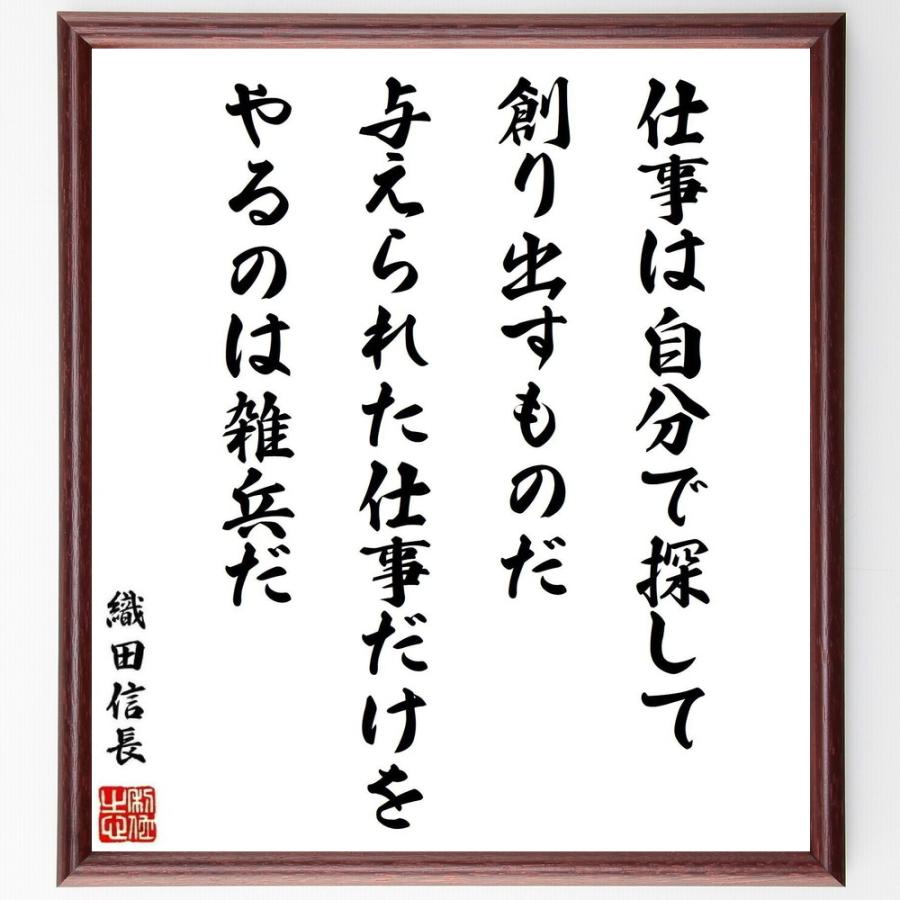 仕事は自分で探して
創り出すものだ
与えられた仕事だけを
やるのは雑兵だ
織田信長